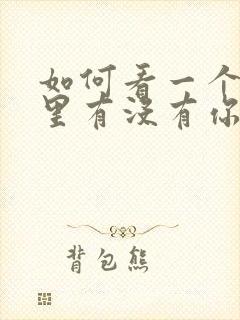 如何看一个
里有没有你
背包熊